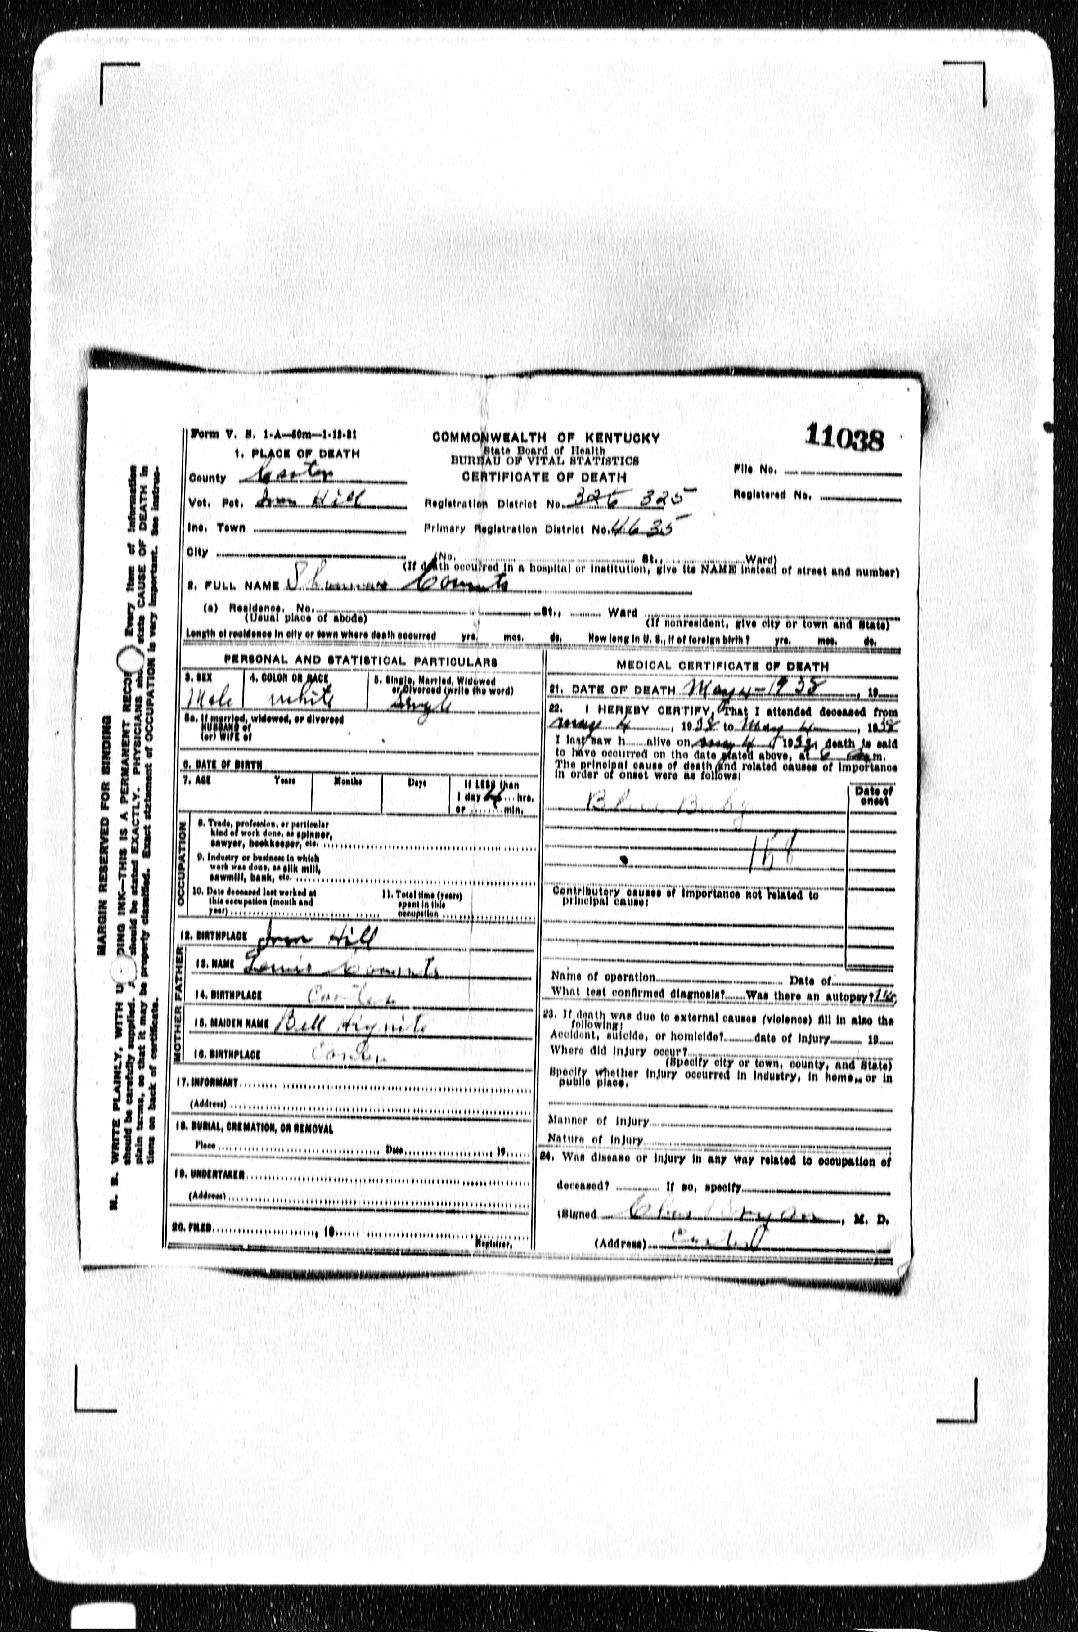 Form V. S. 1-A—50m—1-19-31
COMMONWEALTH OF KENTUCKY
State Board of Health
BUREAU OF VITAL STATISTICS
CERTIFICATE OF DEATH
11038
File No.
Registered No.
1. PLACE OF DEATH
County Carter
Vot. Pct. Iron Hill
Registration District No. 326 325
Inc. Town
Primary Registration District No. 4635
City
(No. St., Ward)
(If death occurred in a hospital or institution, give its NAME instead of street and number)
2. FULL NAME Counts
(a) Residence. No. St., Ward
(Usual place of abode)
(If nonresident, give city or town and State)
Length of residence in city or town where death occurred yrs. mos. ds. How long in U. S., if of foreign birth? yrs. mos. ds.
PERSONAL AND STATISTICAL PARTICULARS
3. SEX
Male
4. COLOR OR RACE
white
5. Single, Married, Widowed
or Divorced (write the word)
Single
5a. If married, widowed, or divorced
HUSBAND of
(or) WIFE of
6. DATE OF BIRTH
7. AGE Years Months Days
If LESS than
1 day 4 hrs.
or min.
OCCUPATION
8. Trade, profession, or particular
kind of work done, as spinner,
sawyer, bookkeeper, etc.
9. Industry or business in which
work was done, as silk mill,
sawmill, bank, etc.
10. Date deceased last worked at
this occupation (month and
year)
11. Total time (years)
spent in this
occupation
12. BIRTHPLACE Iron Hill
FATHER
13. NAME Counts
14. BIRTHPLACE Carter
MOTHER
15. MAIDEN NAME Bell
16. BIRTHPLACE Carter
17. INFORMANT
(Address)
18. BURIAL, CREMATION, OR REMOVAL
Place Date 19
19. UNDERTAKER
(Address)
20. FILED , 19
Registrar.
MEDICAL CERTIFICATE OF DEATH
21. DATE OF DEATH May 4-1938 , 19
22. I HEREBY CERTIFY, That I attended deceased from
May 4 , 1938 to May 4 , 1938
I last saw h alive on May 4 1938, death is said
to have occurred on the date stated above, at 6 m.
The principal cause of death and related causes of importance
in order of onset were as follows:
Date of
onset
Blue Baby
Contributory causes of importance not related to
principal cause:
Name of operation Date of
What test confirmed diagnosis? Was there an autopsy?
23. If death was due to external causes (violence) fill in also the
following:
Accident, suicide, or homicide? date of injury 19
Where did injury occur?
(Specify city or town, county, and State)
Specify whether injury occurred in industry, in home, or in
public place.
Manner of injury
Nature of injury
24. Was disease or injury in any way related to occupation of
deceased? If so, specify
(Signed Bryan , M. D.
(Address) Carter
MARGIN RESERVED FOR BINDING
N. B. WRITE PLAINLY, WITH UNFADING INK—THIS IS A PERMANENT RECORD. Every item of information
should be carefully supplied. AGE should be stated EXACTLY. PHYSICIANS should state CAUSE OF DEATH in
plain terms, so that it may be properly classified. Exact statement of OCCUPATION is very important. See instruc-
tions on back of certificate.